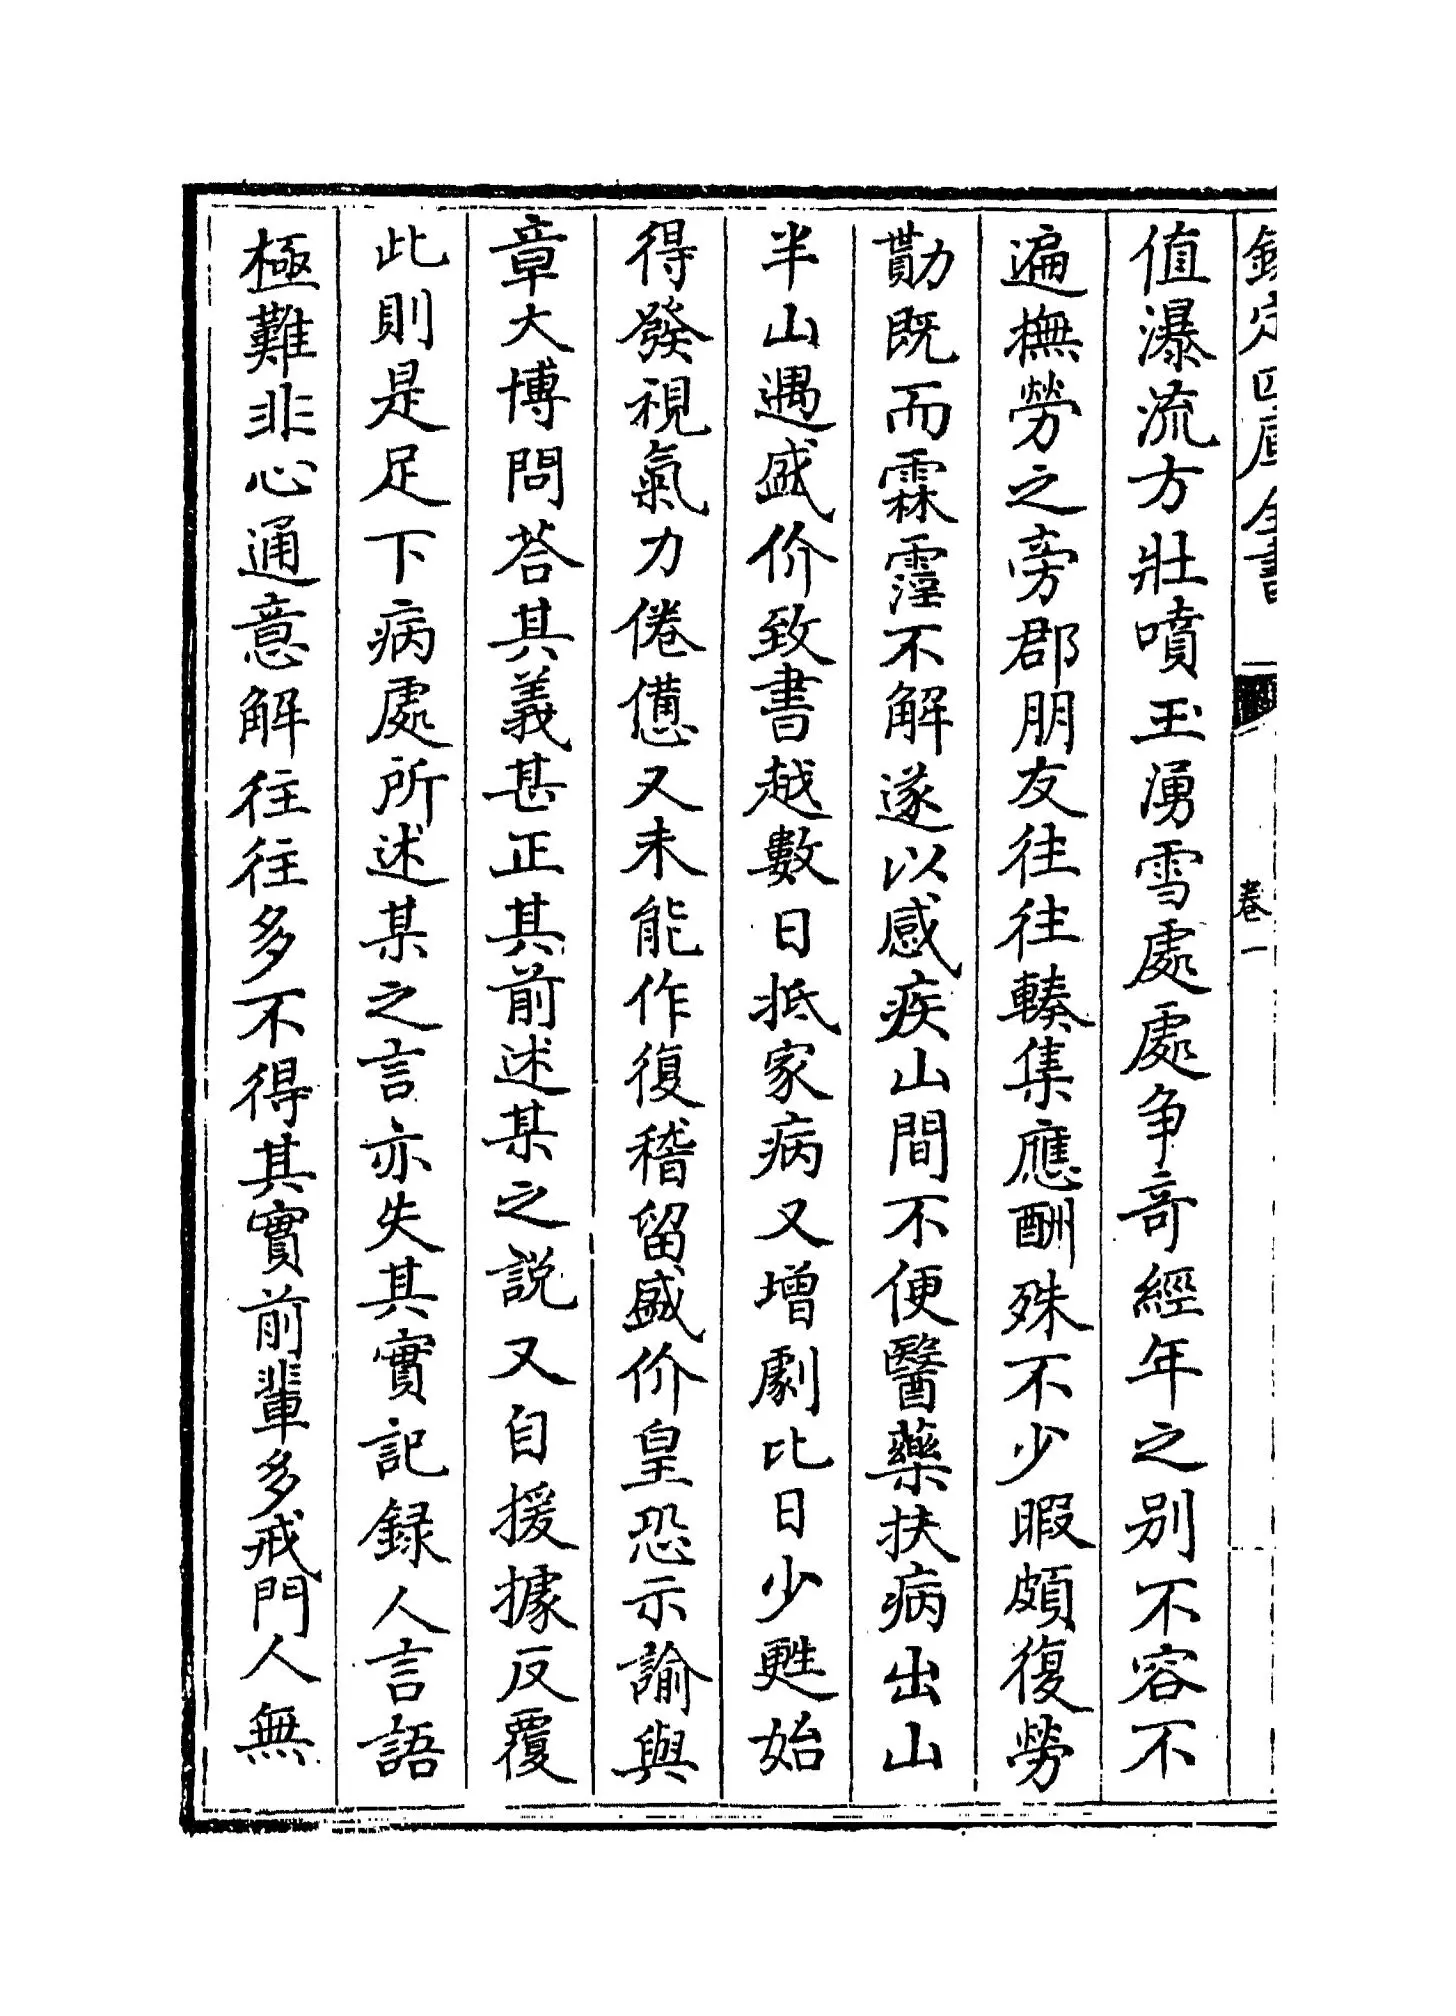 欽定四庫全書
卷一
值瀑流方壯噴玉湧雪處處争竒經年之别不容不
遍撫勞之旁郡朋友往往輳集應酬殊不少暇頗復勞
勩既而霖霪不解遂以感疾山間不便醫藥扶病出山
半山遇盛价致書越數日抵家病又增劇比日少甦始
得發視氣力倦憊又未能作復稽留盛价皇恐示諭與
章大博問荅其義甚正其前述某之説又自援據反覆
此則是足下病處所述某之言亦失其實記録人言語
極難非心通意解往往多不得其實前輩多戒門人無